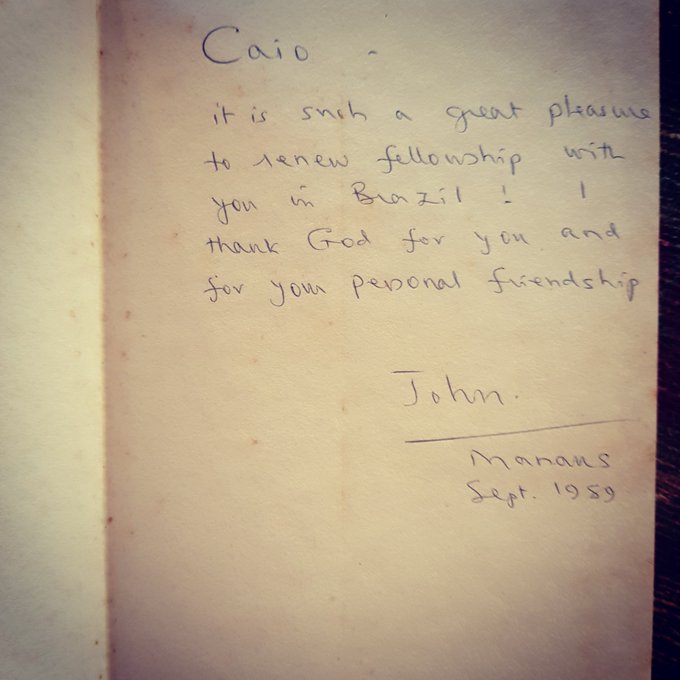 Caio -
it is such a great pleasure
to renew fellowship with
you in Brazil! I
thank God for you and
for your personal friendship
John.
Manaus
Sept. 1989